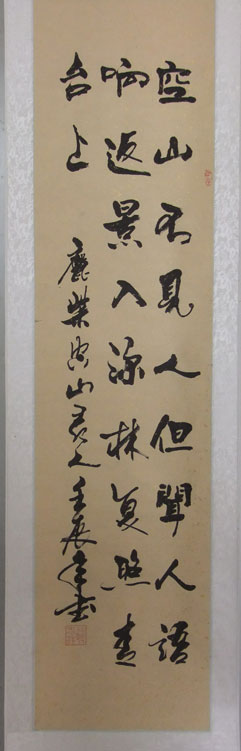 空山不見人但聞人語
响返景入深林复照青
台上
鹿柴 山 人 壬辰年书